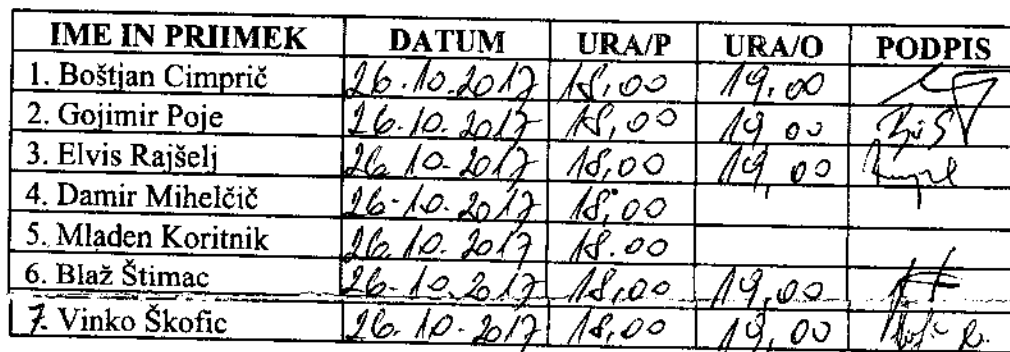 IME IN PRIIMEK DATUM URA/P URA/O PODPIS
1. Boštjan Cimprič 26.10.2017 18,00 19.00
2. Gojimir Poje 26.10.2017 18,00 19 00
3. Elvis Rajšelj 26.10.2017 18,00 19,00
4. Damir Mihelčič 26.10.2017 18,00
5. Mladen Koritnik 26.10.2017 18.00
6. Blaž Štimac 26.10.2017 18,00 19,00
7. Vinko Škofic 26.10.2017 18,00 19,00